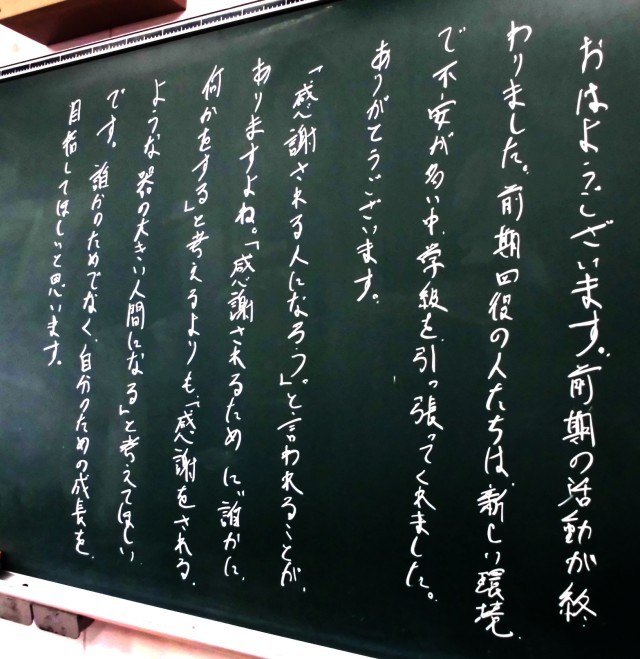 おはようございます。前期の活動が終
わりました。前期四役の人たちは、新しい環境
で不安が多い中、学級を引っ張ってくれました。
ありがとうございます。
「感謝される人になろう。」と言われることが、
ありますよね。「感謝されるために、誰かに、
何かをする」と考えるよりも、「感謝をされる、
ような器の大きい人間になる」と考えてほしい
です。誰かのためでなく、自分のための成長を、
目指してほしいと思います。